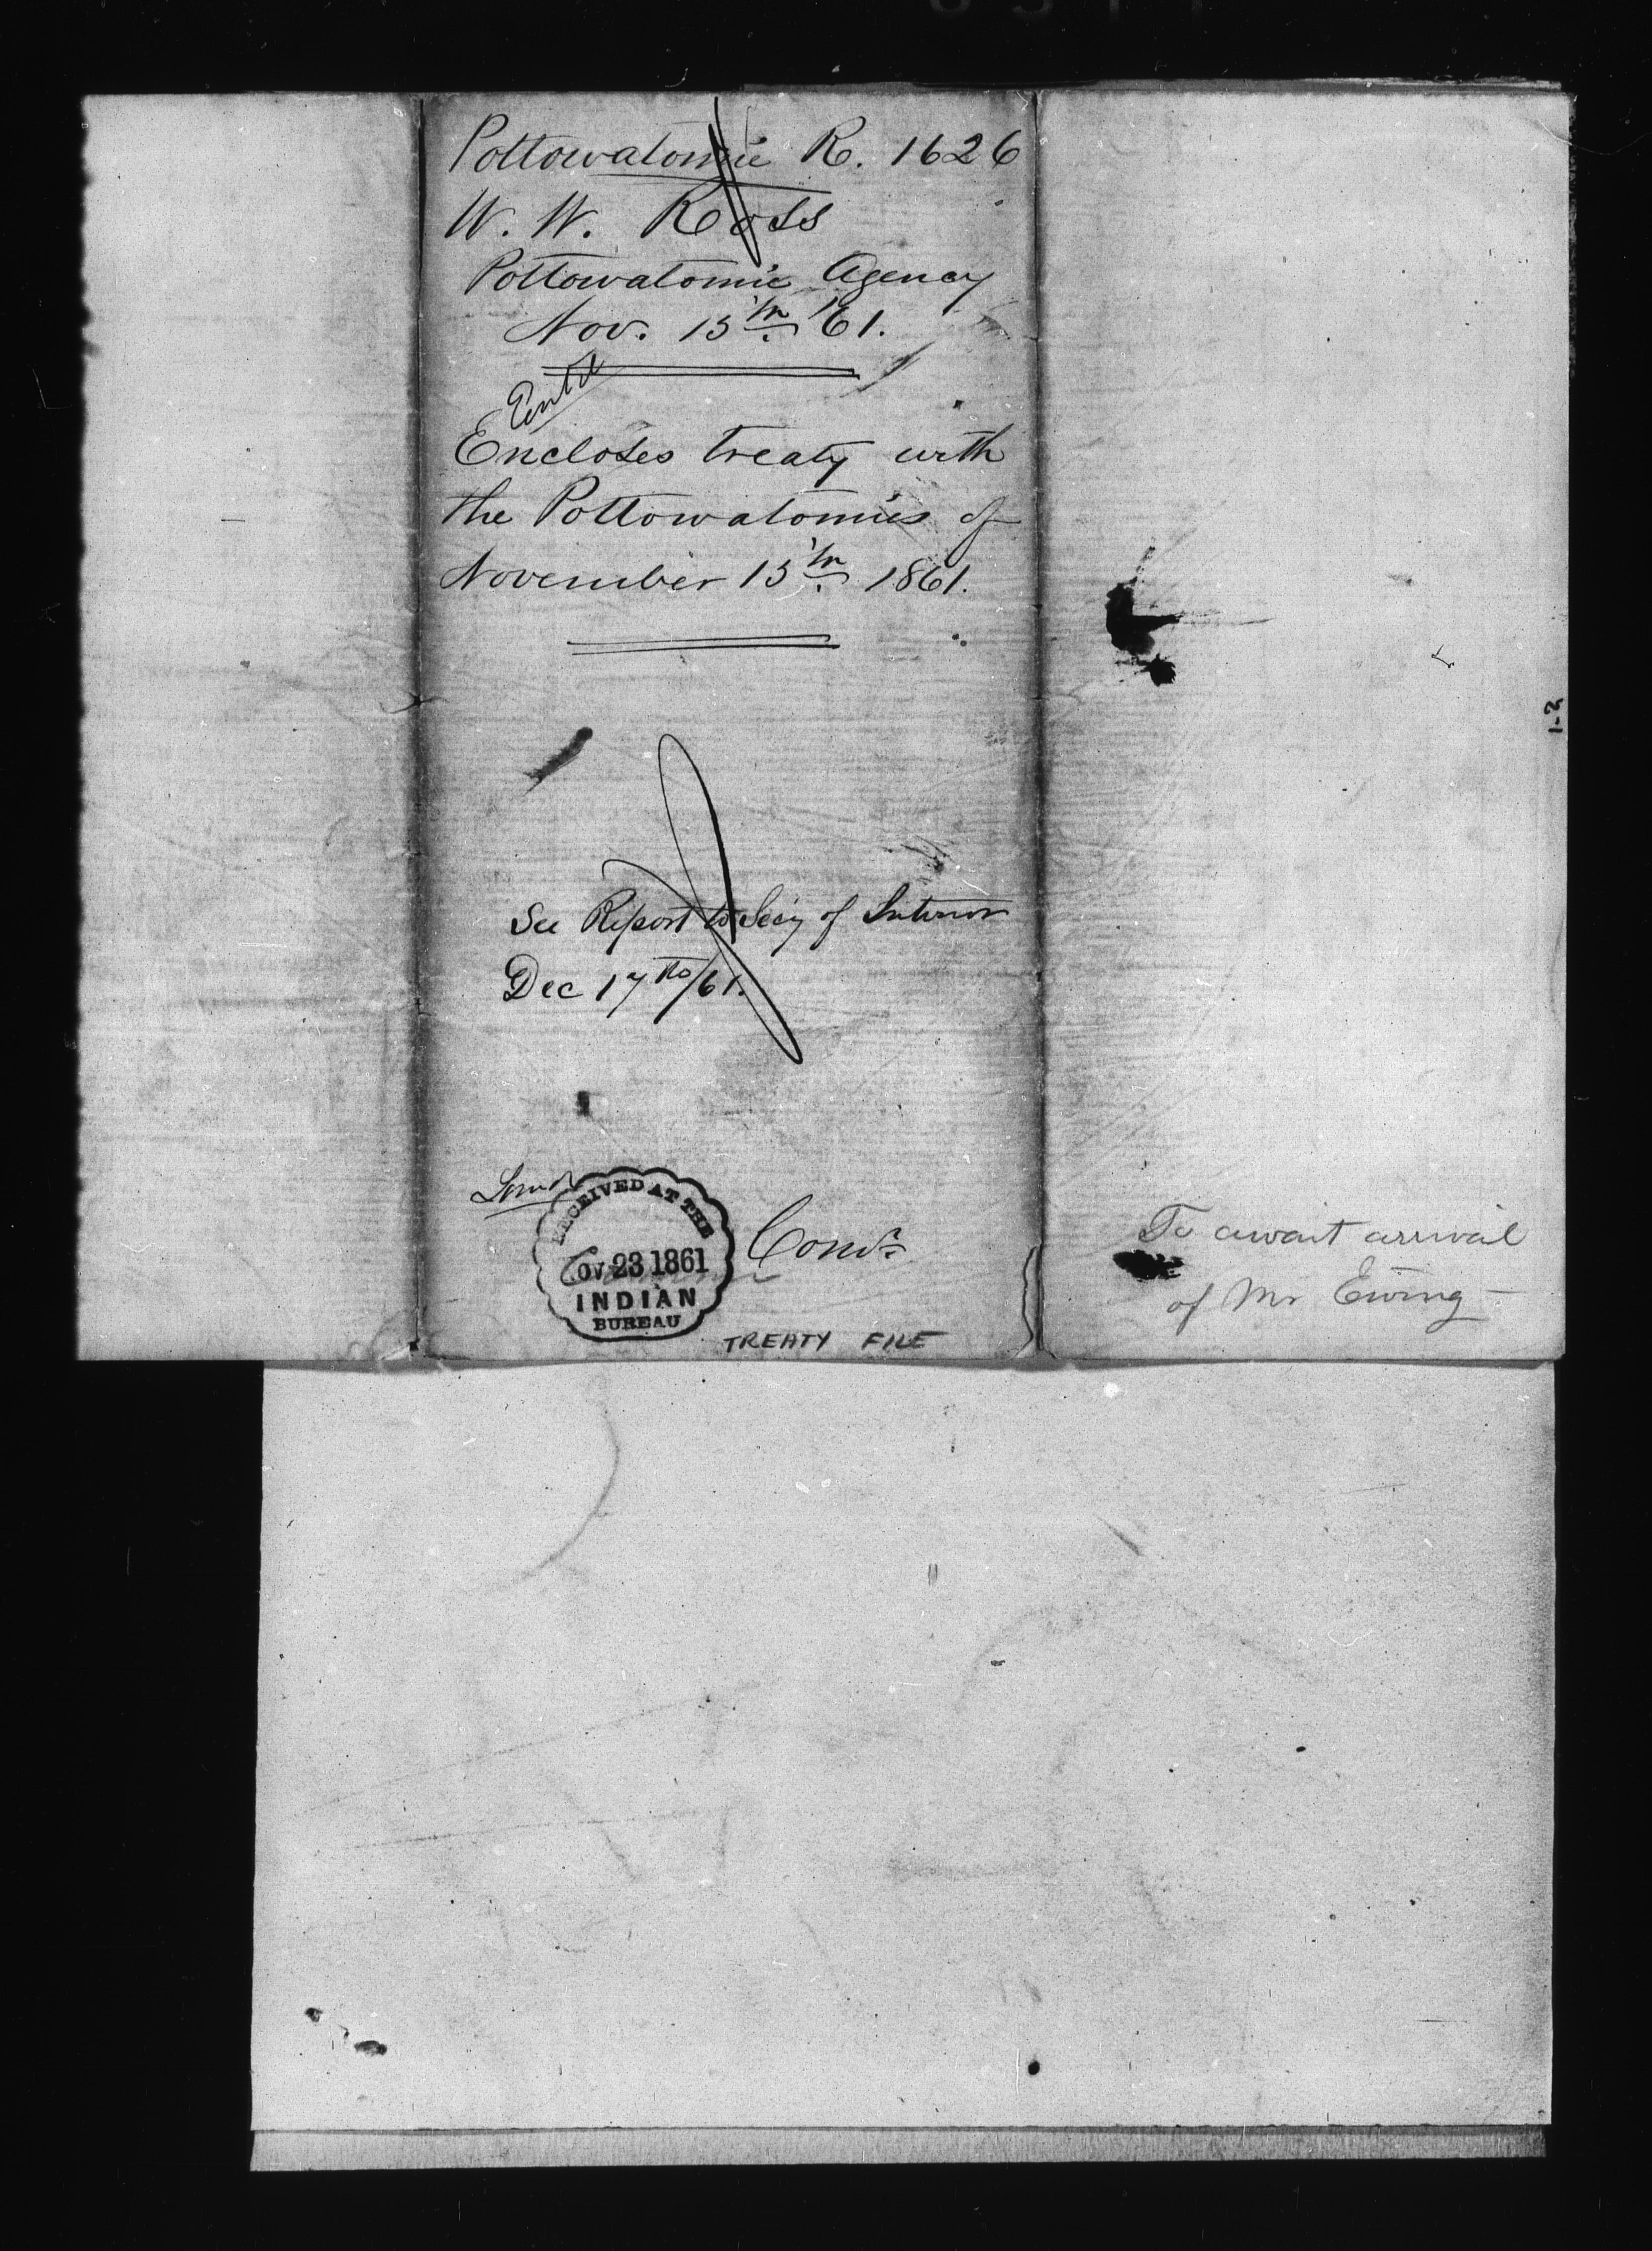 Pottowatomie R. 1626
W. W. Ross
Pottowatomie Agency
Nov. 15th '61.
Encloses treaty with
the Pottowatomies of
November 15th 1861.
See Report to Secy of Interior
Dec 17th/61.
RECEIVED AT THE
NOV 23 1861
INDIAN
BUREAU
Comr.
TREATY FILE
To await arrival
of Mr Ewing
1-2